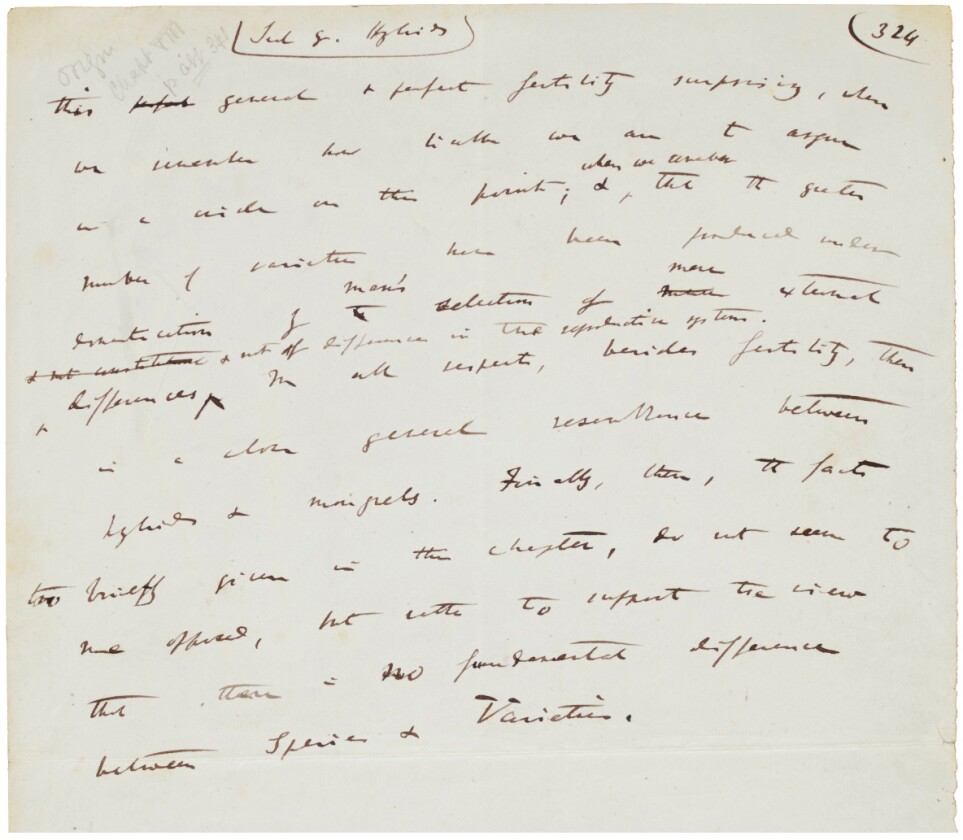 Sect 9. Hybrids
(324
Origin
Chapt VIII
this perfect general & perfect fertility surprising, when
we remember how liable we are to argue
in a circle on this point; &, when we remember that the greater
number of varieties have been produced under
domestication by man's the selection of mere external
& not constitutional & not of differences in the reproductive system.
differences, In all respects, besides fertility, there
is a close general resemblance between
hybrids & mongrels. Finally, then, the facts
too briefly given in this chapter, do not seem to
me opposed, but rather to support the view
that there is no fundamental difference
between Species & Varieties.